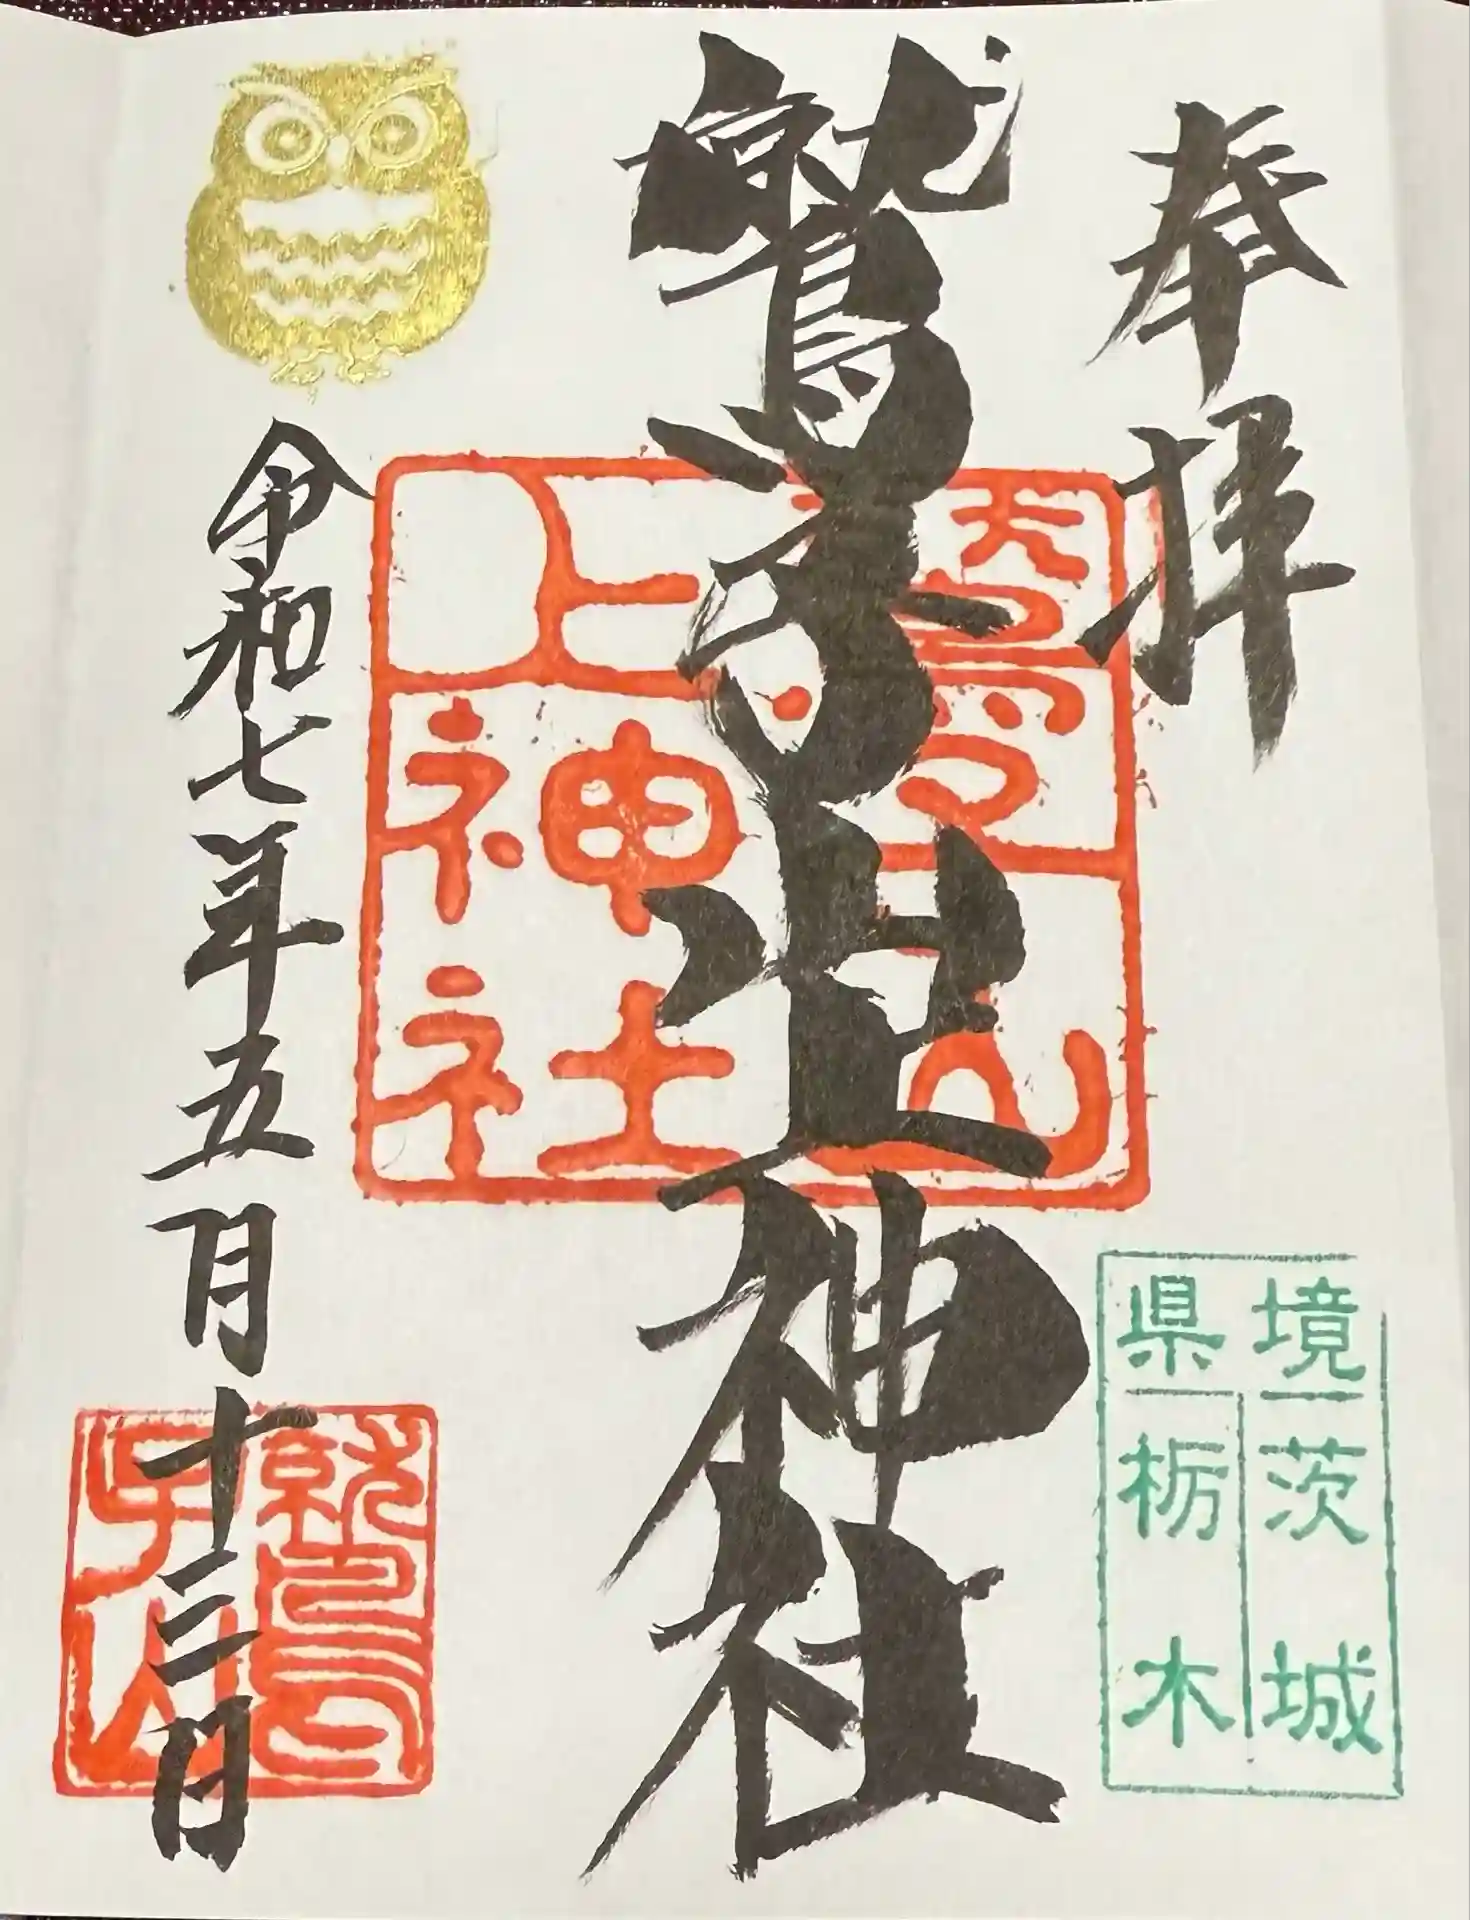 奉拝
鷲子山上神社
鷲子山
上神社
県境
茨城
栃木
令和七年五月十三日
鷲子山